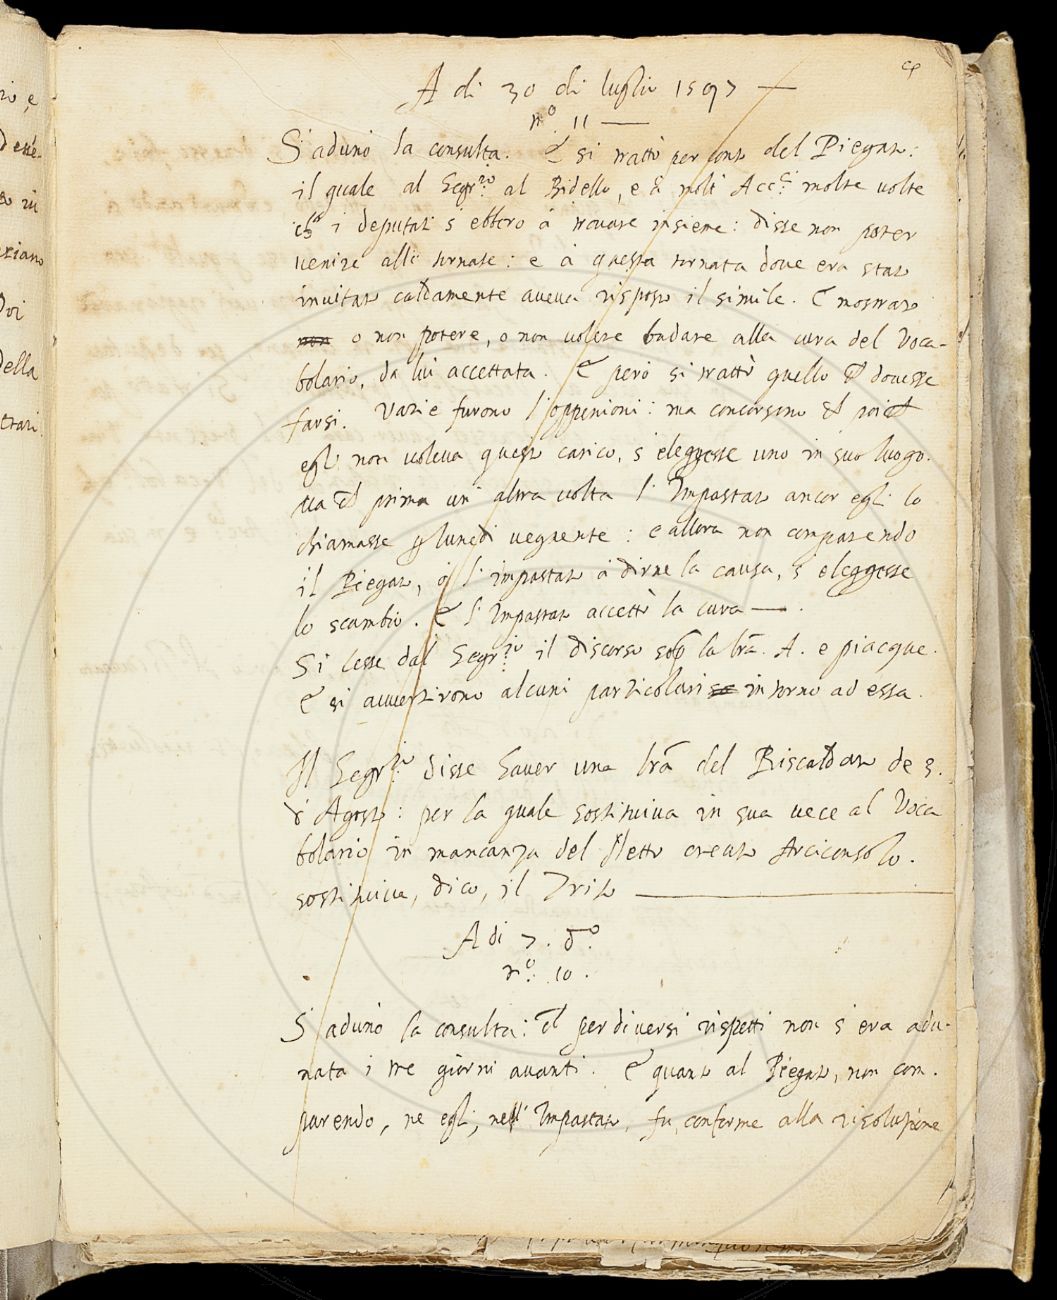 A di 30 di luglio 1597
n.o 11
S'adunò la consulta. E si trattò per conto del Piegato:
il quale al Segr.rio al Bidello, e à molti Acc.ci molte volte
i deputati s'ebbero à trovare insieme: disse non poter
venire alle tornate: e à questa tornata dove era stato
invitato caldamente aveva risposto il simile. E mostrato
non o non potere, o non volere badare alla cura del Voca-
bolario, da lui accettata. E però si trattò quello ch dovesse
farsi. Varie furono l'oppenioni: ma concorsono ch poi ch
egli non voleva questo carico, s'eleggesse uno in suo luogo.
ma ch prima un' altra volta l'Impastato ancor egli lo
chiamasse p lunedì vegnente: e allora non comparendo
il Piegato, o l'impastato à dirne la causa, s'eleggesse
lo scambio. E l'Impastato accettò la cura.
Si lesse dal Segr.rio il discorso sop.a la lr̃a. A. e piacque.
E si avvertirono alcuni particolari intorno ad essa.
Il Segr.rio disse haver una lr̃a del Riscaldato de 3.
d'Agosto: per la quale sostituiva in sua vece al Voca
bolario in mancanza del Netto creato Arciconsolo.
sostituiva, dico, il Trito
A di 7. d.o
n.o 10.
S'adunò la consulta: ch per diversi rispetti non s'era adu-
nata i tre giorni avanti. E quanto al Piegato, non com.
parendo, ne egli, ne l'Impastato, fu, conforme alla risoluzione